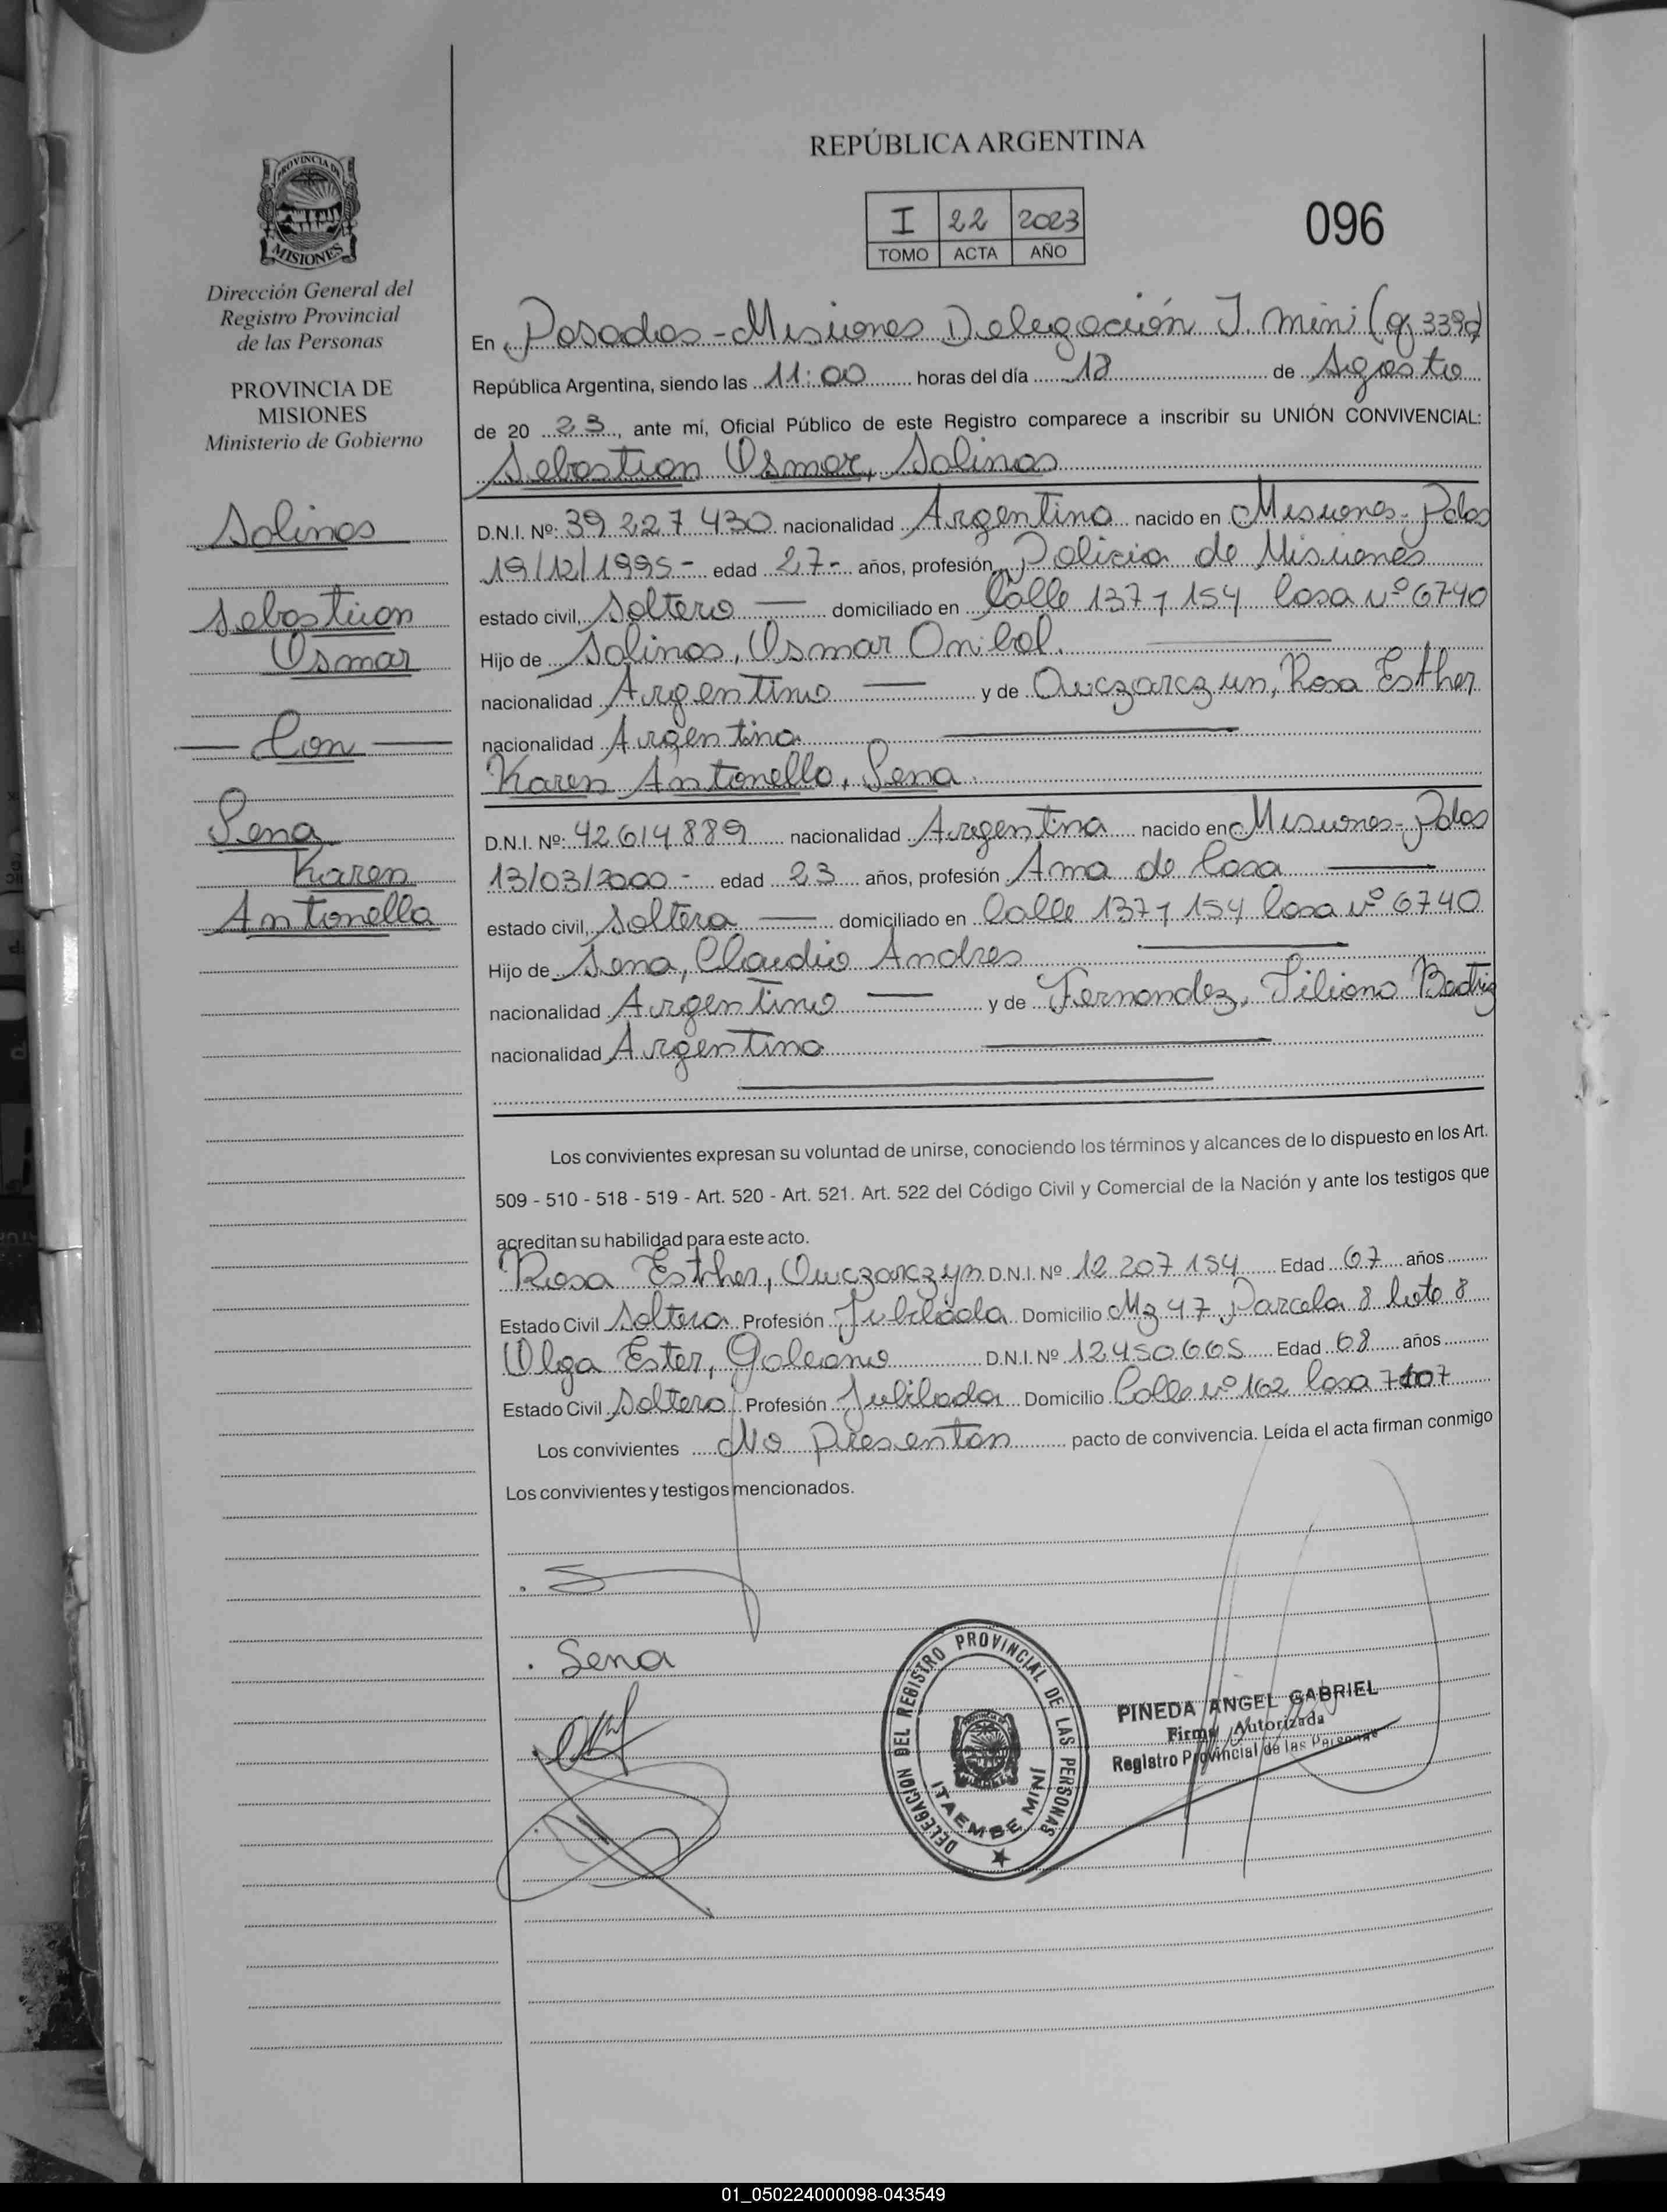 REPÚBLICA ARGENTINA
I 22 2023
TOMO ACTA AÑO
096
PROVINCIA DE
MISIONES
Dirección General del
Registro Provincial
de las Personas
PROVINCIA DE
MISIONES
Ministerio de Gobierno
Salinas
Sebastian
Osmar
Con
Sena
Karen
Antonella
En Posadas - Misiones Delegación I mini (
República Argentina, siendo las 11:00 horas del día 18 de Agosto
de 20 23, ante mí, Oficial Público de este Registro comparece a inscribir su UNIÓN CONVIVENCIAL:
Sebastian Osmar, Salinas
D.N.I. Nº: 39 227 430 nacionalidad Argentina nacido en Misiones - Pdas
19/12/1995 - edad 27 - años, profesión Policia de Misiones
estado civil, Soltero domiciliado en Calle 137 y 154 Casa nº 6740
Hijo de Salinas, Osmar Anibal.
nacionalidad Argentino y de Owczarczyn, Rosa Esther
nacionalidad Argentina
Karen Antonella, Sena
D.N.I. Nº: 42 614 889 nacionalidad Argentina nacido en Misiones - Pdas
13/03/2000 - edad 23 años, profesión Ama de Casa
estado civil, Soltera domiciliado en Calle 137 y 154 Casa nº 6740
Hijo de Sena, Claudio Andres
nacionalidad Argentino y de Fernandez, Liliana Beatriz
nacionalidad Argentina
Los convivientes expresan su voluntad de unirse, conociendo los términos y alcances de lo dispuesto en los Art.
509 - 510 - 518 - 519 - Art. 520 - Art. 521. Art. 522 del Código Civil y Comercial de la Nación y ante los testigos que
acreditan su habilidad para este acto.
Rosa Esther, Owczarczyn D.N.I. Nº 12 207 154 Edad 67 años
Estado Civil Soltera Profesión Jubilada Domicilio Mz 47 Parcela 8 lote 8
Olga Ester, Galeano D.N.I. Nº 12450665 Edad 68 años
Estado Civil Soltera Profesión Jubilada Domicilio Calle nº 162 Casa
Los convivientes No Presentan pacto de convivencia. Leída el acta firman conmigo
Los convivientes y testigos mencionados.
Sena
DELEGACION DEL REGISTRO PROVINCIAL DE LAS PERSONAS
ITAEMBE MINI
PINEDA ANGEL GABRIEL
Firma Autorizada
Registro Provincial de las Personas
01_050224000098-043549